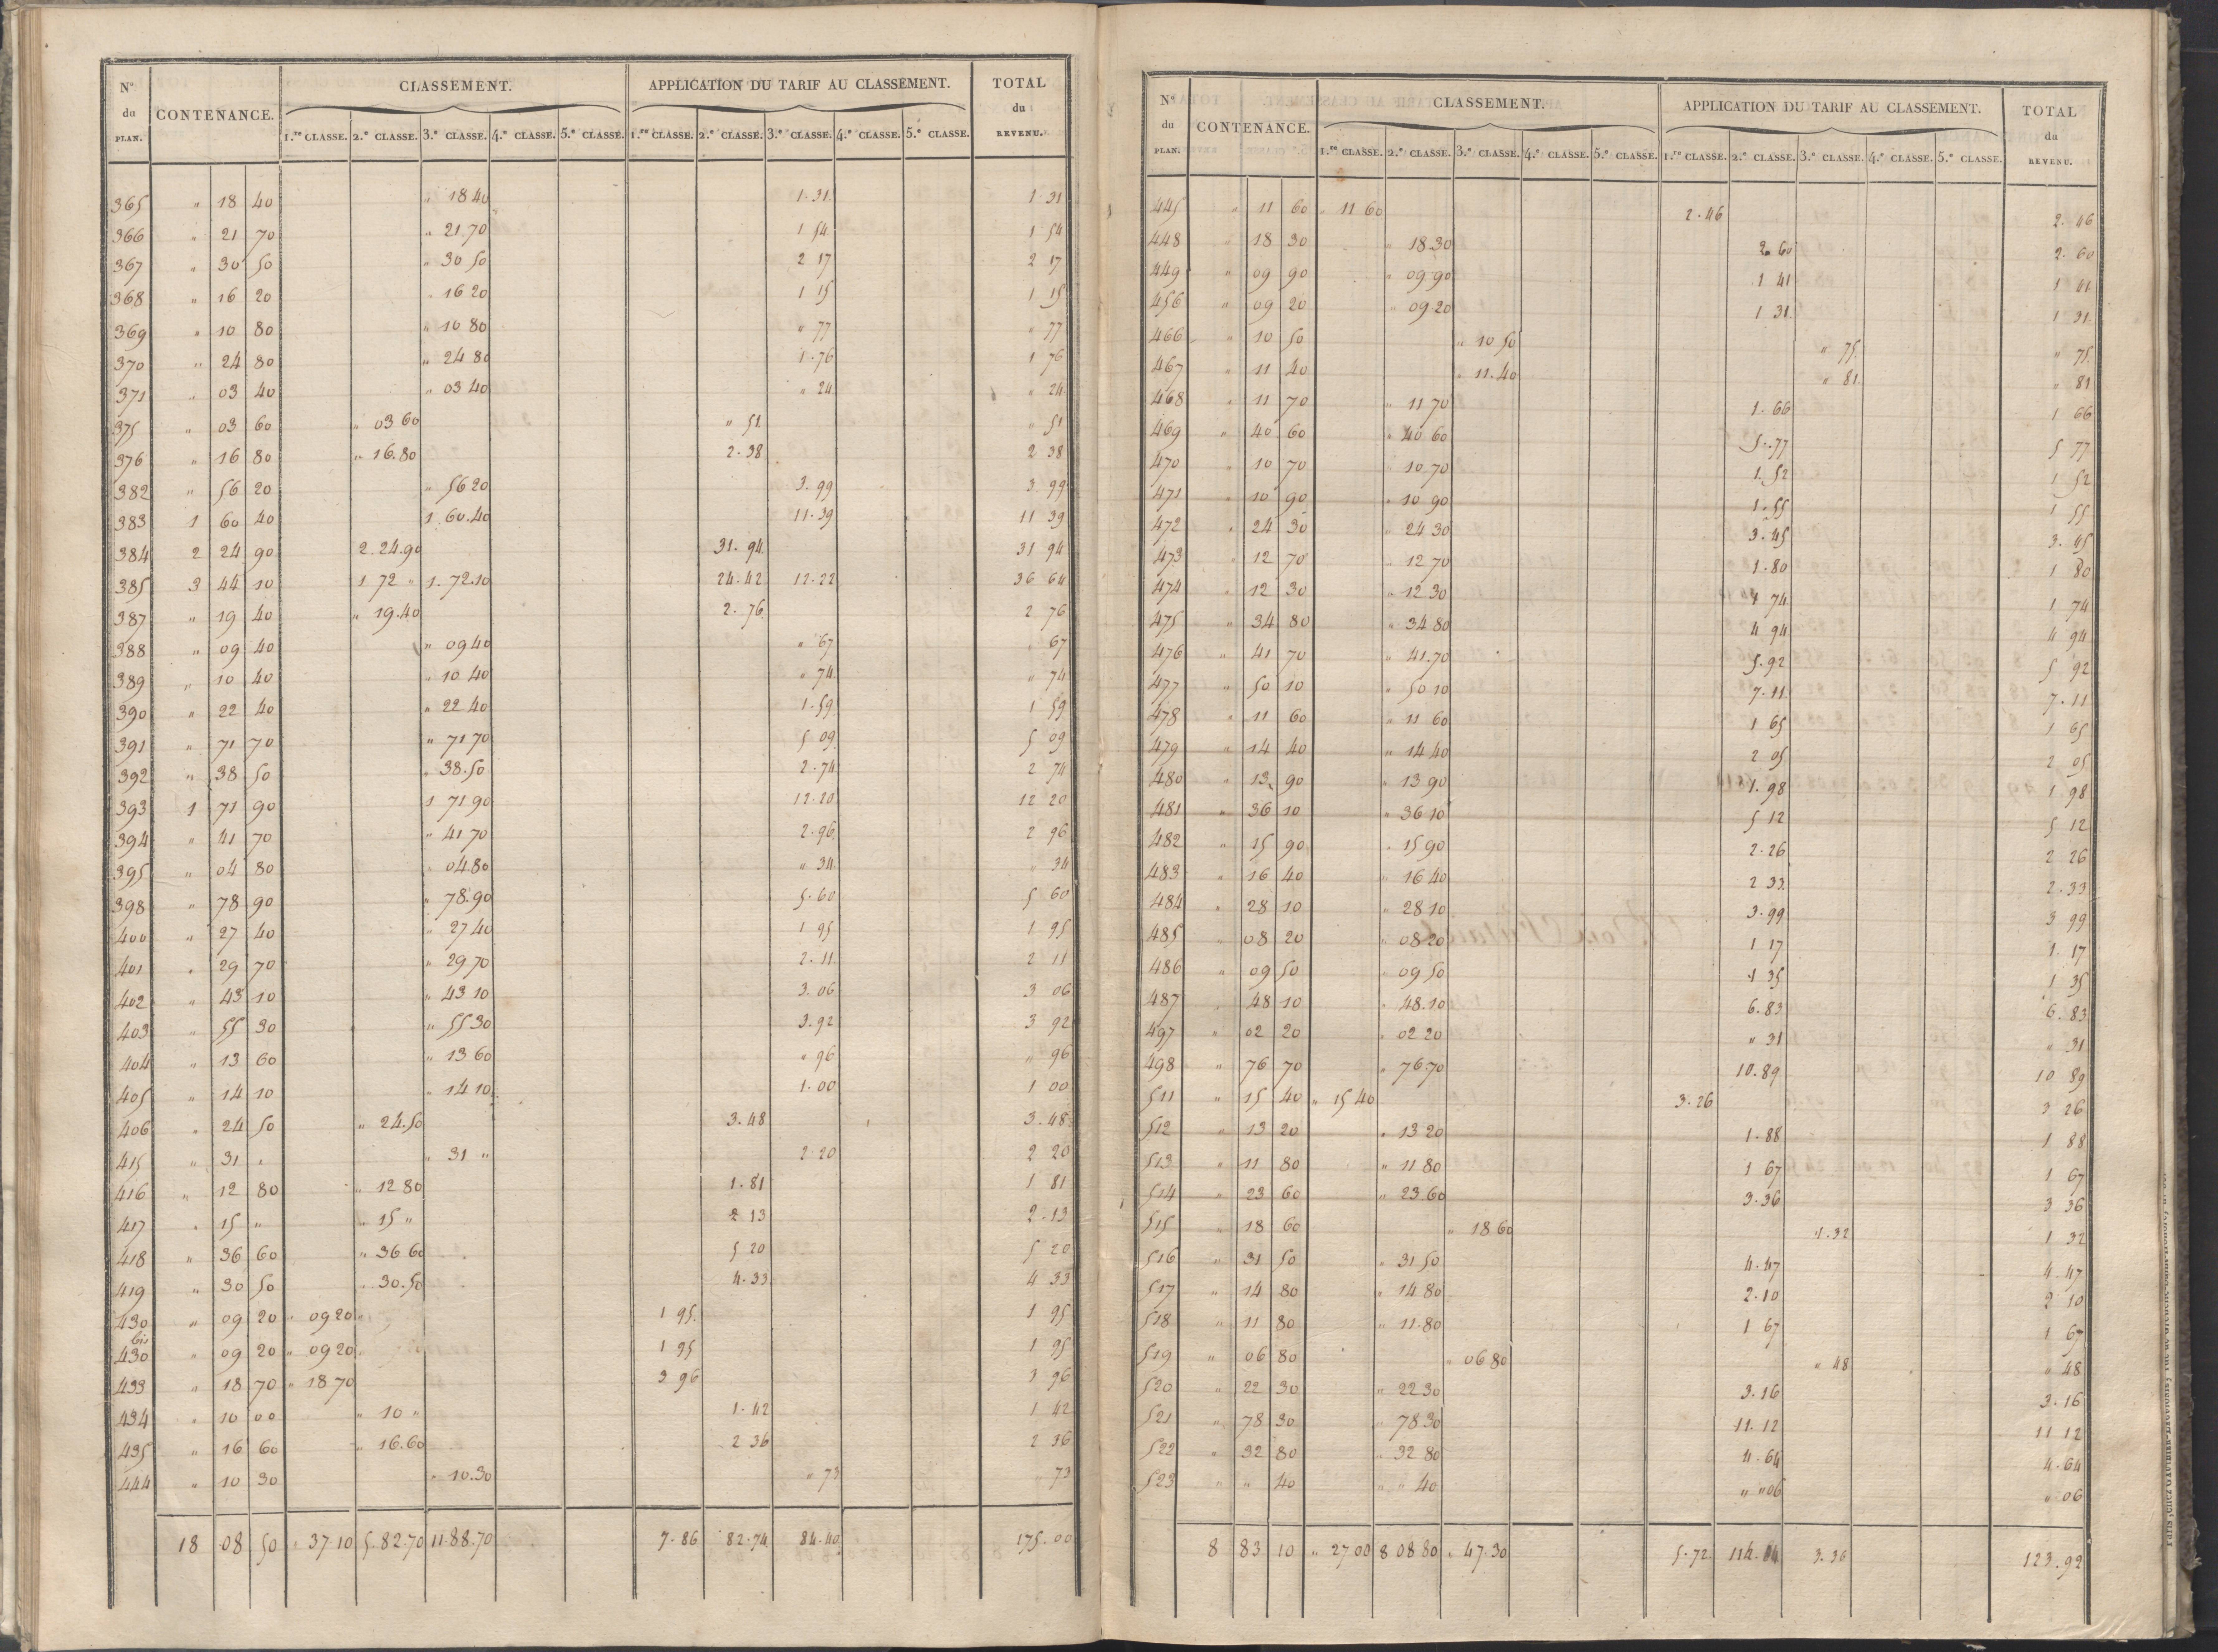 N.os du PLAN. CONTENANCE. CLASSEMENT. APPLICATION DU TARIF AU CLASSEMENT. TOTAL du REVENU.
1.re CLASSE. 2.e CLASSE. 3.e CLASSE. 4.e CLASSE. 5.e CLASSE. 1.re CLASSE. 2.e CLASSE. 3.e CLASSE. 4.e CLASSE. 5.e CLASSE.
365 " 18 40 " 18 40 1.31 1.31
366 " 21 70 " 21.70 1 54 1 54
367 " 30 50 " 30 50 2 17 2 17
368 " 16 20 " 16 20 1 15 1 15
369 " 10 80 " 10 80 " 77 " 77
370 " 24 80 " 24 80 1.76 1 76
371 " 03 40 " 03 40 " 24 " 24
375 " 03 60 " 03 60 " 51 " 51
376 " 16 80 " 16.80 2.38 2 38
382 " 56 20 " 56 20 3.99 3.99
383 1 60 40 1.60.40 11.39 11 39
384 2 24 90 2.24.90 31.94 31 94
385 3 44 10 1 72 " 1.72.10 24.42 12.22 36 64
387 " 19 40 " 19.40 2.76 2 76
388 " 09 40 " 09 40 " 67 " 67
389 " 10 40 " 10 40 " 74 " 74
390 " 22 40 " 22 40 1.59 1 59
391 " 71 70 " 71 70 5 09 5 09
392 " 38 50 " 38.50 2.74 2 74
393 1 71 90 1 71 90 12.20 12 20
394 " 41 70 " 41 70 2.96 2 96
395 " 04 80 " 04 80 " 34 " 34
398 " 78 90 " 78.90 5.60 5 60
400 " 27 40 " 27 40 1 95 1 95
401 " 29 70 " 29 70 2.11 2 11
402 " 43 10 " 43 10 3.06 3 06
403 " 55 30 " 55 30 3.92 3 92
404 " 13 60 " 13 60 " 96 " 96
405 " 14 10 " 14 10 1.00 1 00
406 " 24 50 " 24.50 3.48 3.48
415 " 31 " " 31 " 2 20 2 20
416 " 12 80 " 12 80 1.81 1 81
417 " 15 " " 15 " 2 13 2.13
418 " 36 60 " 36 60 5 20 5 20
419 " 30 50 " 30.50 4.33 4 33
430 " 09 20 " 09 20 1 95 1 95
bis
430 " 09 20 " 09 20 1 95 1 95
433 " 18 70 " 18 70 3 96 3 96
434 " 10 00 " 10 " 1.42 1 42
435 " 16 60 " 16.60 2 36 2 36
444 " 10 30 " 10.30 " 73 " 73
18 08 50 " 37 10 5.82.70 11.88.70 7.86 82.74 84.40 175.00
N.os du PLAN. CONTENANCE. CLASSEMENT. APPLICATION DU TARIF AU CLASSEMENT. TOTAL du REVENU.
1.re CLASSE. 2.e CLASSE. 3.e CLASSE. 4.e CLASSE. 5.e CLASSE. 1.re CLASSE. 2.e CLASSE. 3.e CLASSE. 4.e CLASSE. 5.e CLASSE.
445 " 11 60 " 11 60 2.46 2.46
448 " 18 30 " 18.30 2.60 2.60
449 " 09 90 " 09 90 1 41 1 41
456 " 09 20 " 09.20 1 31 1 31
466 " 10 50 " 10 50 " 75 " 75
467 " 11 40 " 11.40 " 81 " 81
468 " 11 70 " 11 70 1.66 1 66
469 " 40 60 " 40 60 5.77 5 77
470 " 10 70 " 10.70 1.52 1 52
471 " 10 90 " 10 90 1.55 1 55
472 " 24 30 " 24 30 3.45 3.45
473 " 12 70 " 12 70 1.80 1 80
474 " 12 30 " 12 30 1 74 1 74
475 " 34 80 " 34 80 4 94 4 94
476 " 41 70 " 41.70 5.92 5 92
477 " 50 10 " 50 10 7.11 7.11
478 " 11 60 " 11 60 1 65 1 65
479 " 14 40 " 14 40 2 05 2 05
480 " 13 90 " 13 90 1.98 1 98
481 " 36 10 " 36 10 5 12 5 12
482 " 15 90 " 15 90 2.26 2 26
483 " 16 40 " 16 40 2 33 2.33
484 " 28 10 " 28 10 3.99 3 99
485 " 08 20 " 08 20 1 17 1.17
486 " 09 50 " 09 50 1 35 1 35
487 " 48 10 " 48.10 6.83 6.83
497 " 02 20 " 02 20 " 31 " 31
498 " 76 70 " 76.70 10.89 10 89
511 " 15 40 " 15 40 3.26 3 26
512 " 13 20 " 13 20 1.88 1 88
513 " 11 80 " 11 80 1 67 1 67
514 " 23 60 " 23.60 3.36 3 36
515 " 18 60 " 18 60 1.32 1 32
516 " 31 50 " 31 50 4.47 4.47
517 " 14 80 " 14 80 2.10 2 10
518 " 11 80 " 11.80 1 67 1 67
519 " 06 80 " 06 80 " 48 " 48
520 " 22 30 " 22 30 3.16 3.16
521 " 78 30 " 78.30 11.12 11 12
522 " 32 80 " 32 80 4.64 4.64
523 " " 40 " " 40 " " 06 " 06
8 83 10 " 27 00 8 08 80 " 47.30 5.72 3.36 123.92